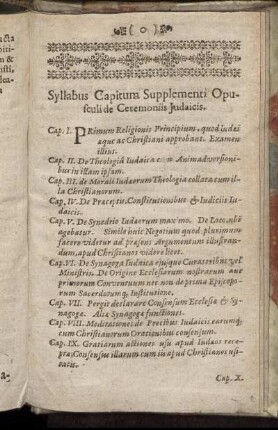 ( o )
Syllabus Capitum Supplementi Opu-
sculi de Ceremoniis Judaicis.
Cap. I. PRimum Religionis Principium, quod Iudæi
æque ac Christiani approbant. Examen
illius.
Cap. II. De Theologiâ Iudaica cum Animadversioni-
bus in illam ipsam.
Cap. III. de Morali Iudæorum Theologia collata cum il-
la Christianorum.
Cap. IV. De Præceptis, Constitutionibus & Iudiciis Iu-
daicis.
Cap. V. De Synedrio Iudæorum maximo. De Loco ubi
agebatur. Simile huic Negotium quod plurimum
facere videtur ad præsens Argumentum illustran-
dum, apud Christianos videre licet.
Cap. VI. De Synagoga Iudaica ejusque Curatoribus vel
Ministris. De Origine Ecclesiarum nostrarum aut
primorum Conventuum nec non de prima Episcopo-
rum Sacerdotumq; Institutione.
Cap. VII. Pergit declarare Consensum Ecclesiæ & Sy-
nagogæ. Aliæ Synagogæ functiones.
Cap. VIII. Meditationes de Precibus Iudaicis earumq;
cum Christianorum Orationibus consensum.
Cap. IX. Gratiarum actiones usu apud Iudæos rece-
ptæ; Consensus illarum cum iis apud Christianos usi-
tatis.
Cap. X.